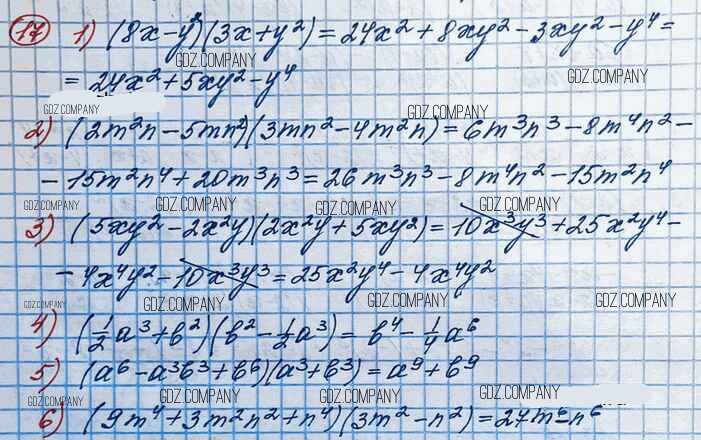 17 1) (8x-y²)(3x+y²)=24x²+8xy²-3xy²-y⁴=
GDZ.COMPANY GDZ.COMPANY
=24x²+5xy²-y⁴
GDZ.COMPANY GDZ.COMPANY
2) (2m²n-5mn²)(3mn²-4m²n)=6m³n³-8m⁴n²-
-15m²n⁴+20m³n³=26m³n³-8m⁴n²-15m²n⁴
GDZ.COMPANY GDZ.COMPANY GDZ.COMPANY GDZ.COMPANY
3) (5xy²-2x²y)(2x²y+5xy²)=10x³y³+25x²y⁴-
-4x⁴y²-10x³y³=25x²y⁴-4x⁴y²
GDZ.COMPANY GDZ.COMPANY GDZ.COMPANY GDZ.COMPANY
4) (½a³+b²)(b²-½a³)=b⁴-¼a⁶
5) (a⁶-a³b³+b⁶)(a³+b³)=a⁹+b⁹
GDZ.COMPANY GDZ.COMPANY GDZ.COMPANY GDZ.COMPANY
6) (9m⁴+3m²n²+n⁴)(3m²-n²)=27m⁶-n⁶